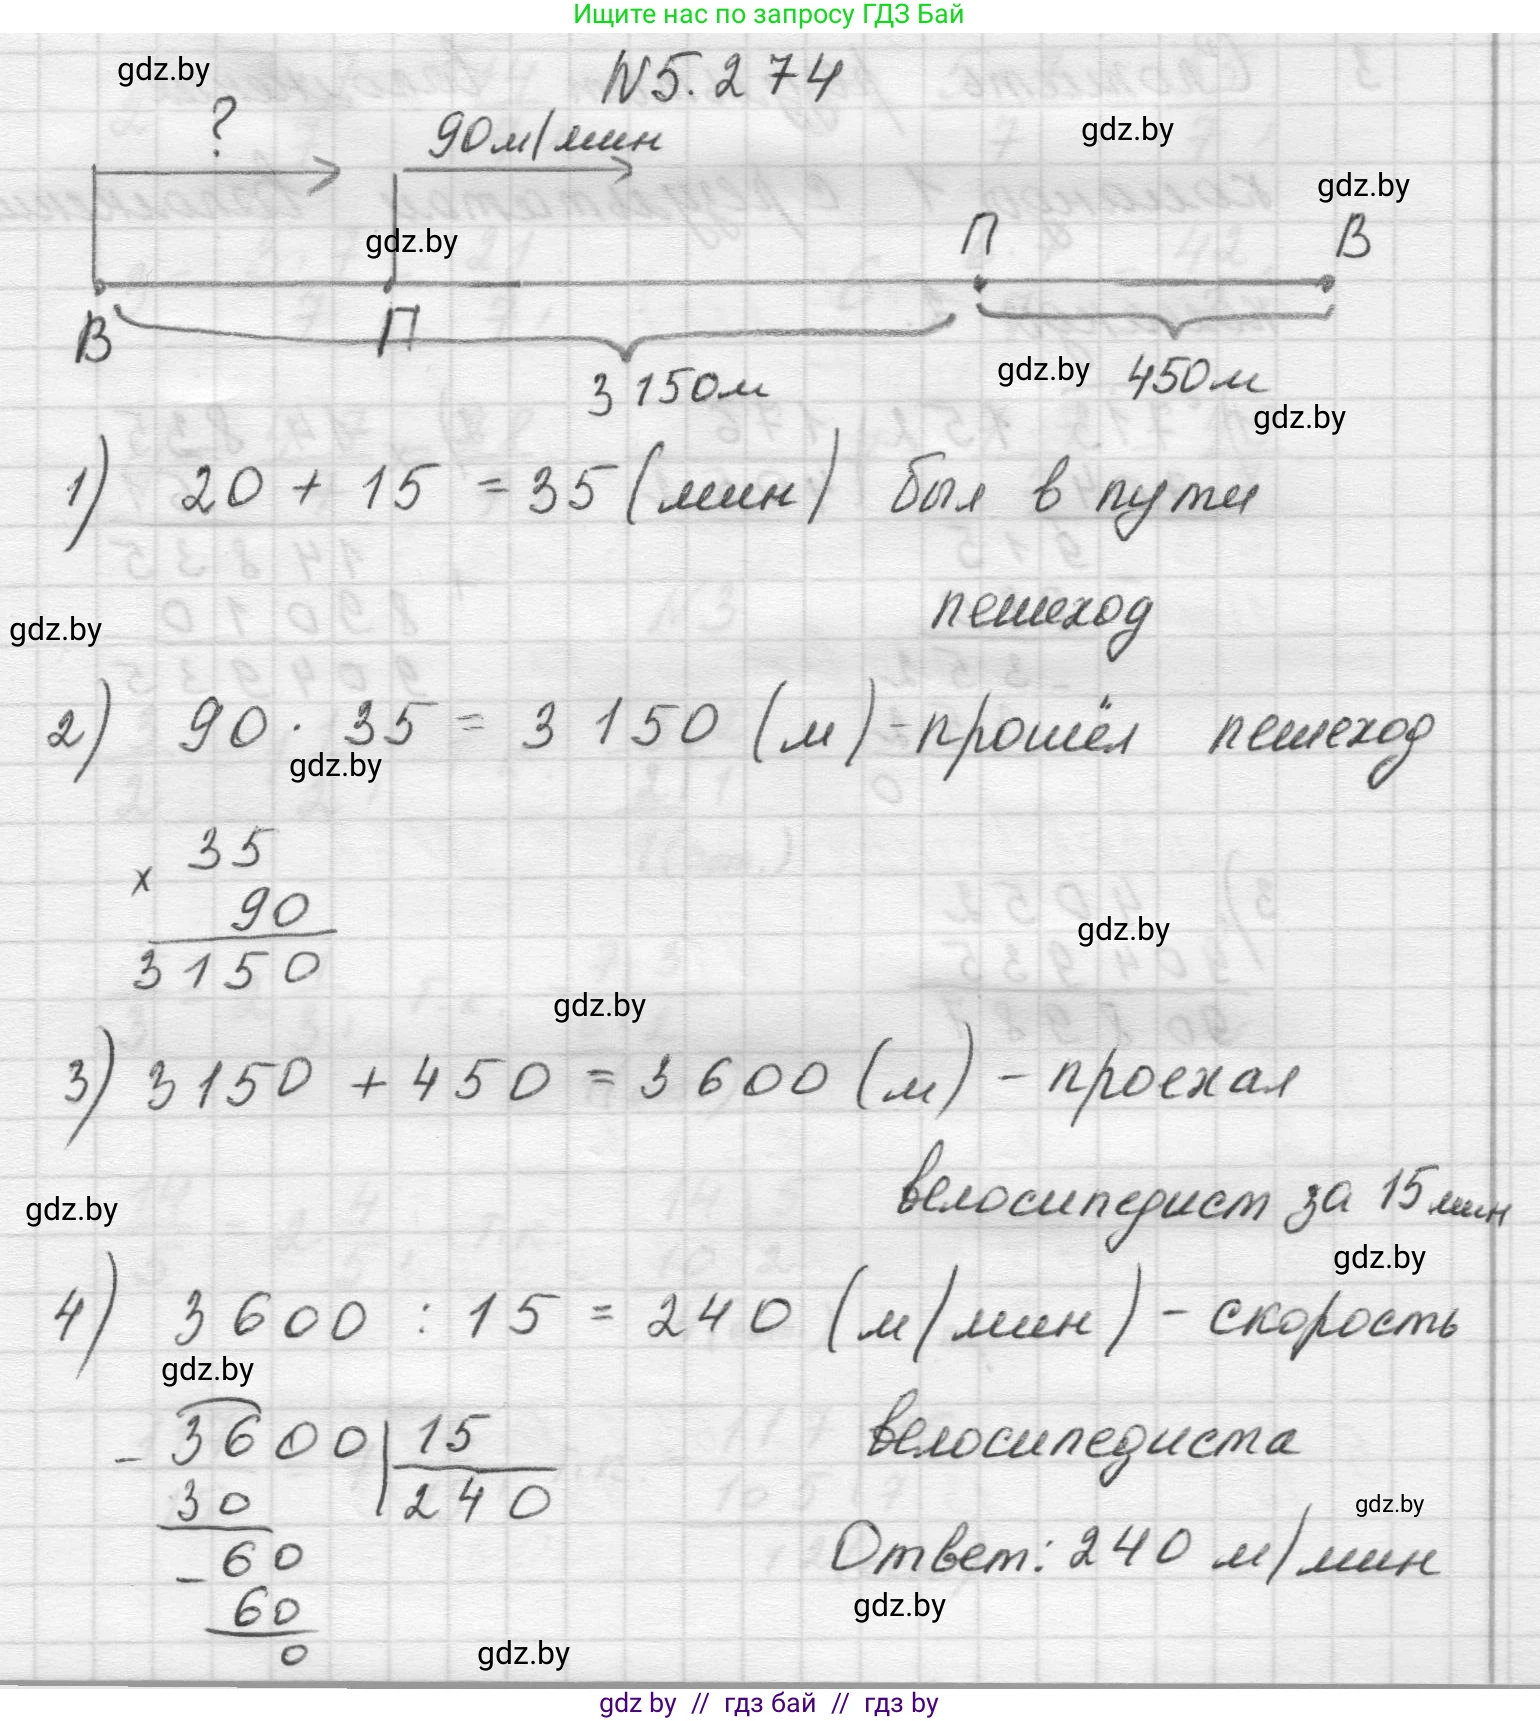 Ищите нас по запросу ГДЗ Бай
gdz.by
N5.274
?
90м/мин
gdz.by
gdz.by
gdz.by
П
В
В
П
3 150м
gdz.by
450м
gdz.by
1) 20 + 15 = 35 (мин) был в пути
пешеход
gdz.by
2) 90 · 35 = 3 150 (м) - прошёл пешеход
gdz.by
35
×
90
3150
gdz.by
gdz.by
3) 3150 + 450 = 3 600 (м) - проехал
велосипедист за 15 мин
gdz.by
gdz.by
4) 3600 : 15 = 240 (м/мин) - скорость
gdz.by
велосипедиста
- 3600 15
30 240
- 60
60
0
gdz.by
Ответ: 240 м/мин
gdz.by
gdz.by
gdz by // гдз бай // гдз by